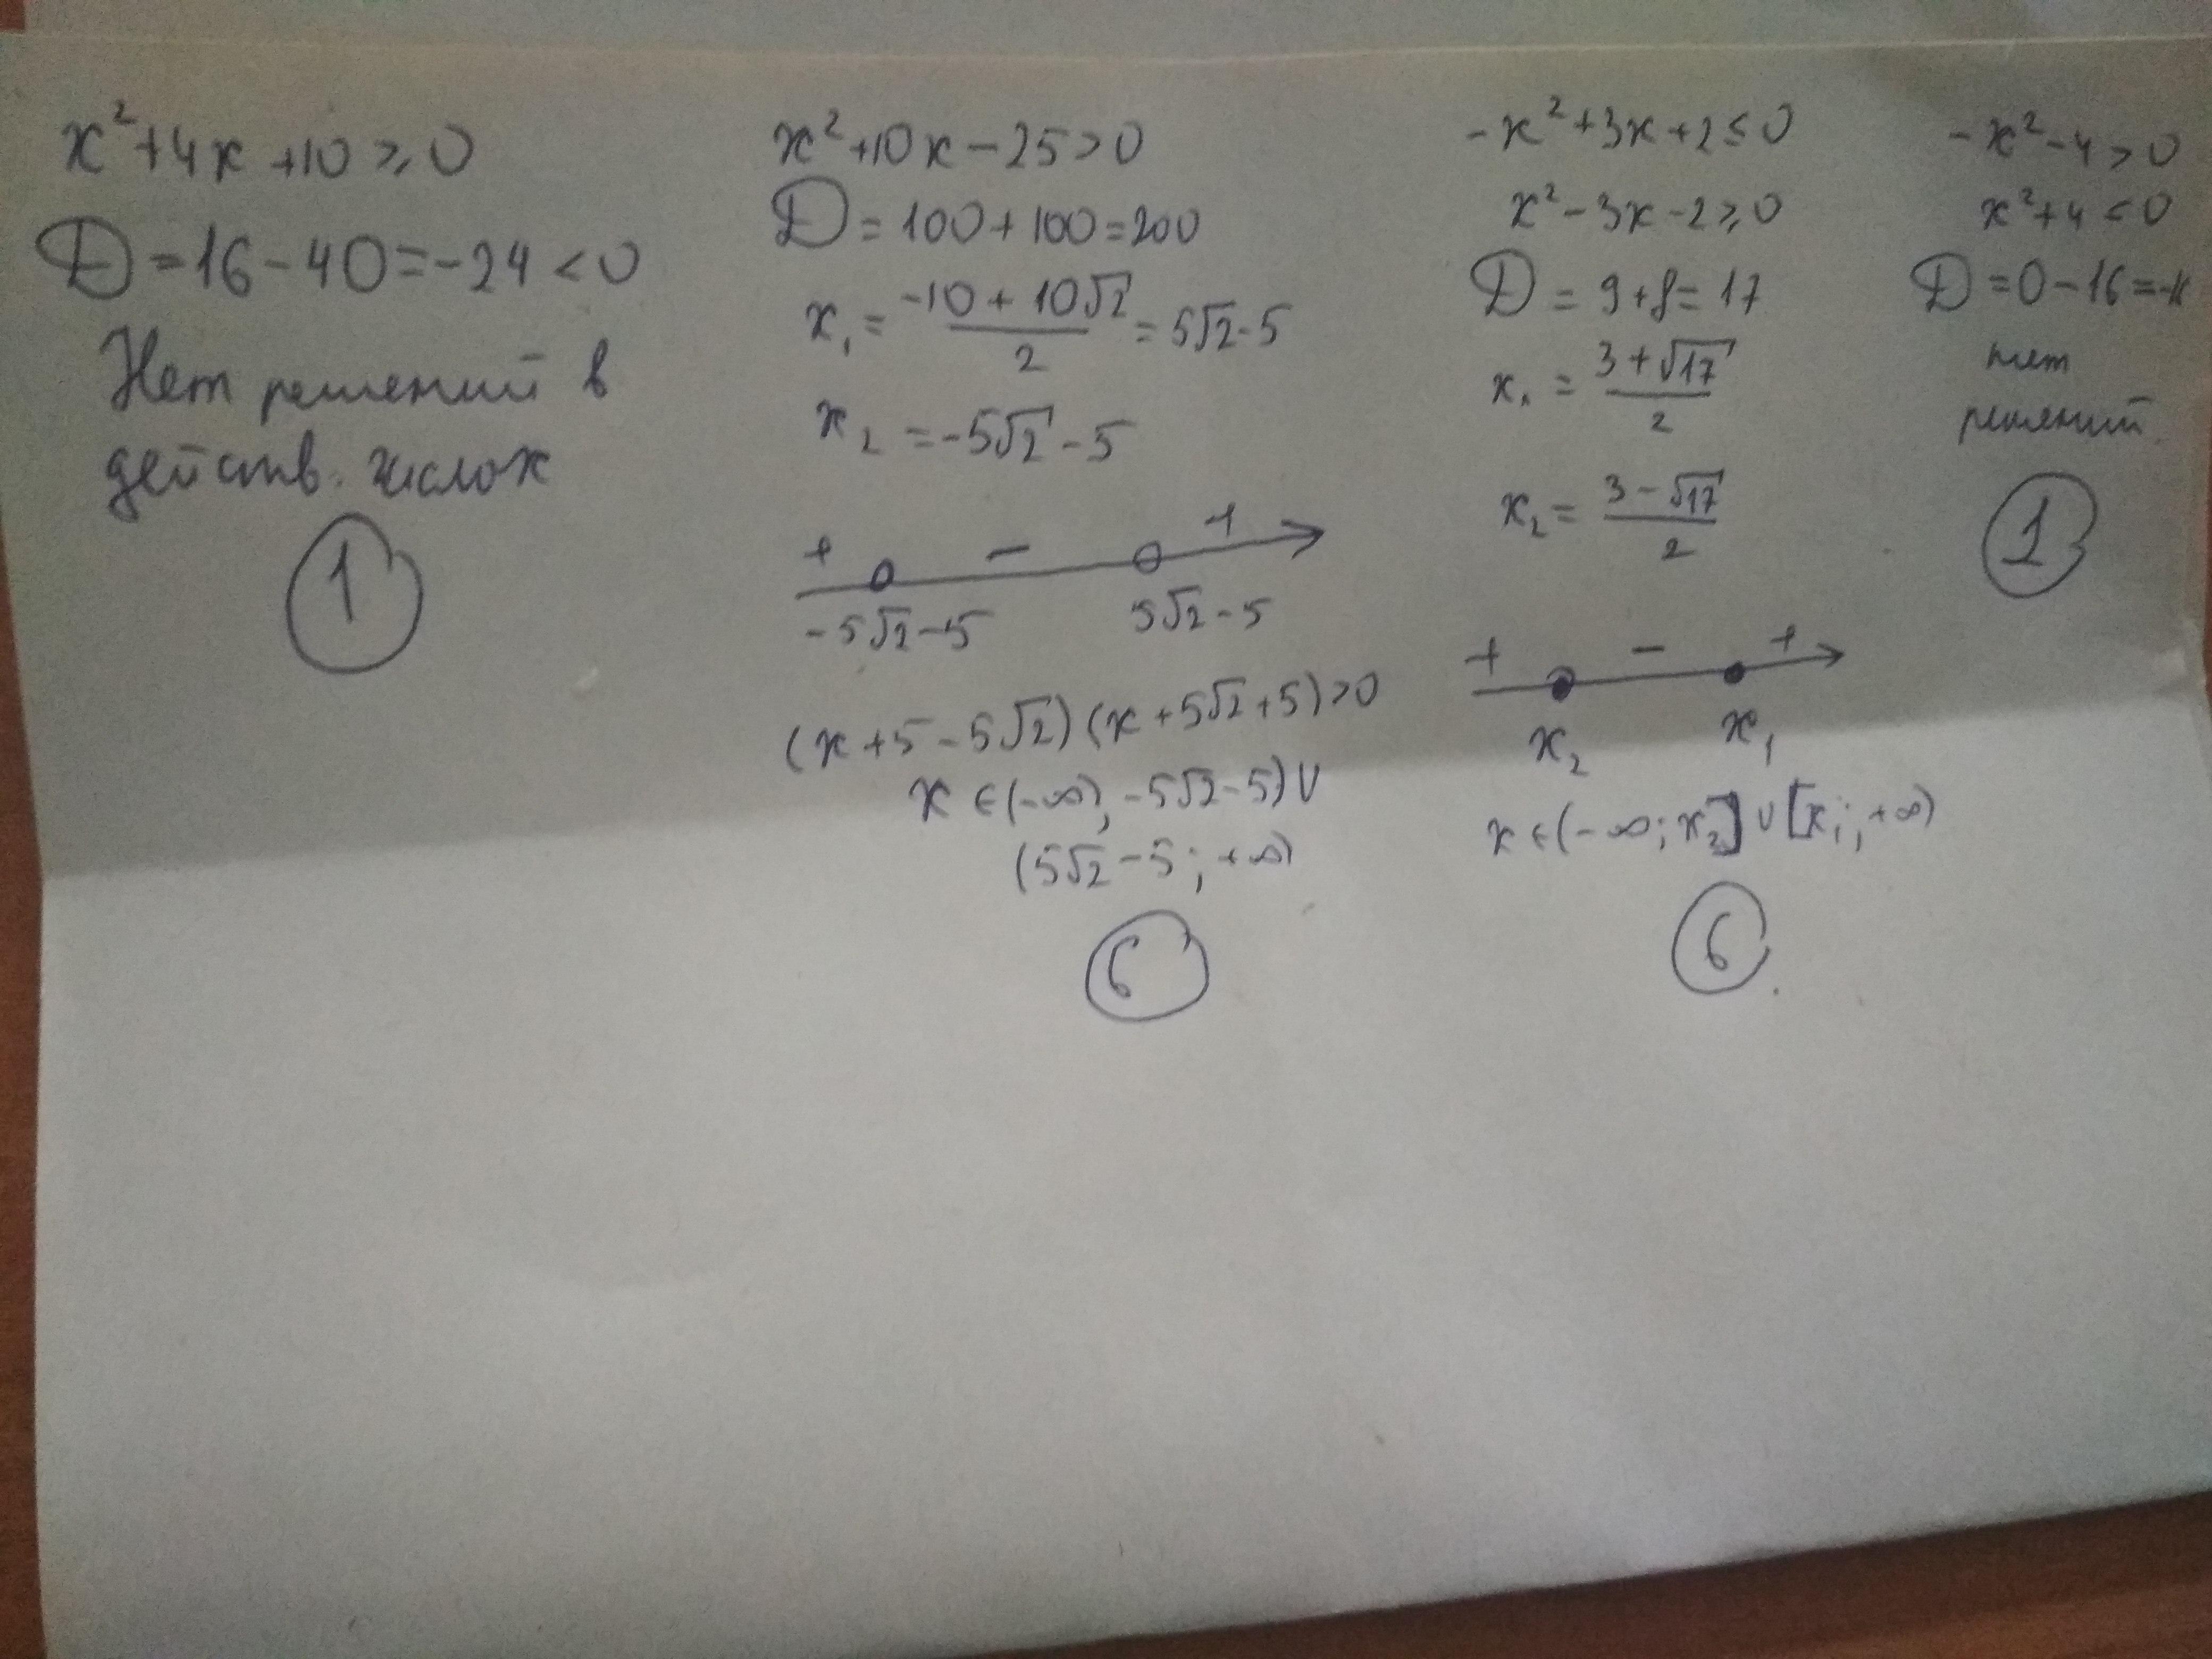 x²+4x+10≥0
D=16-40=-24<0
Нет решений в
действ. числах
1
x²+10x-25>0
D=100+100=200
x₁=(-10+10√2)/2=5√2-5
x₂=-5√2-5
+ - +
-5√2-5 5√2-5
(x+5-5√2)(x+5√2+5)>0
x∈(-∞;-5√2-5)∪
(5√2-5;+∞)
6
-x²+3x+2≤0
x²-3x-2≥0
D=9+8=17
x₁=(3+√17)/2
x₂=(3-√17)/2
+ - +
x₂ x₁
x∈(-∞;x₂]∪[x₁;+∞)
6
-x²-4>0
x²+4<0
D=0-16=
нет
решений.
1